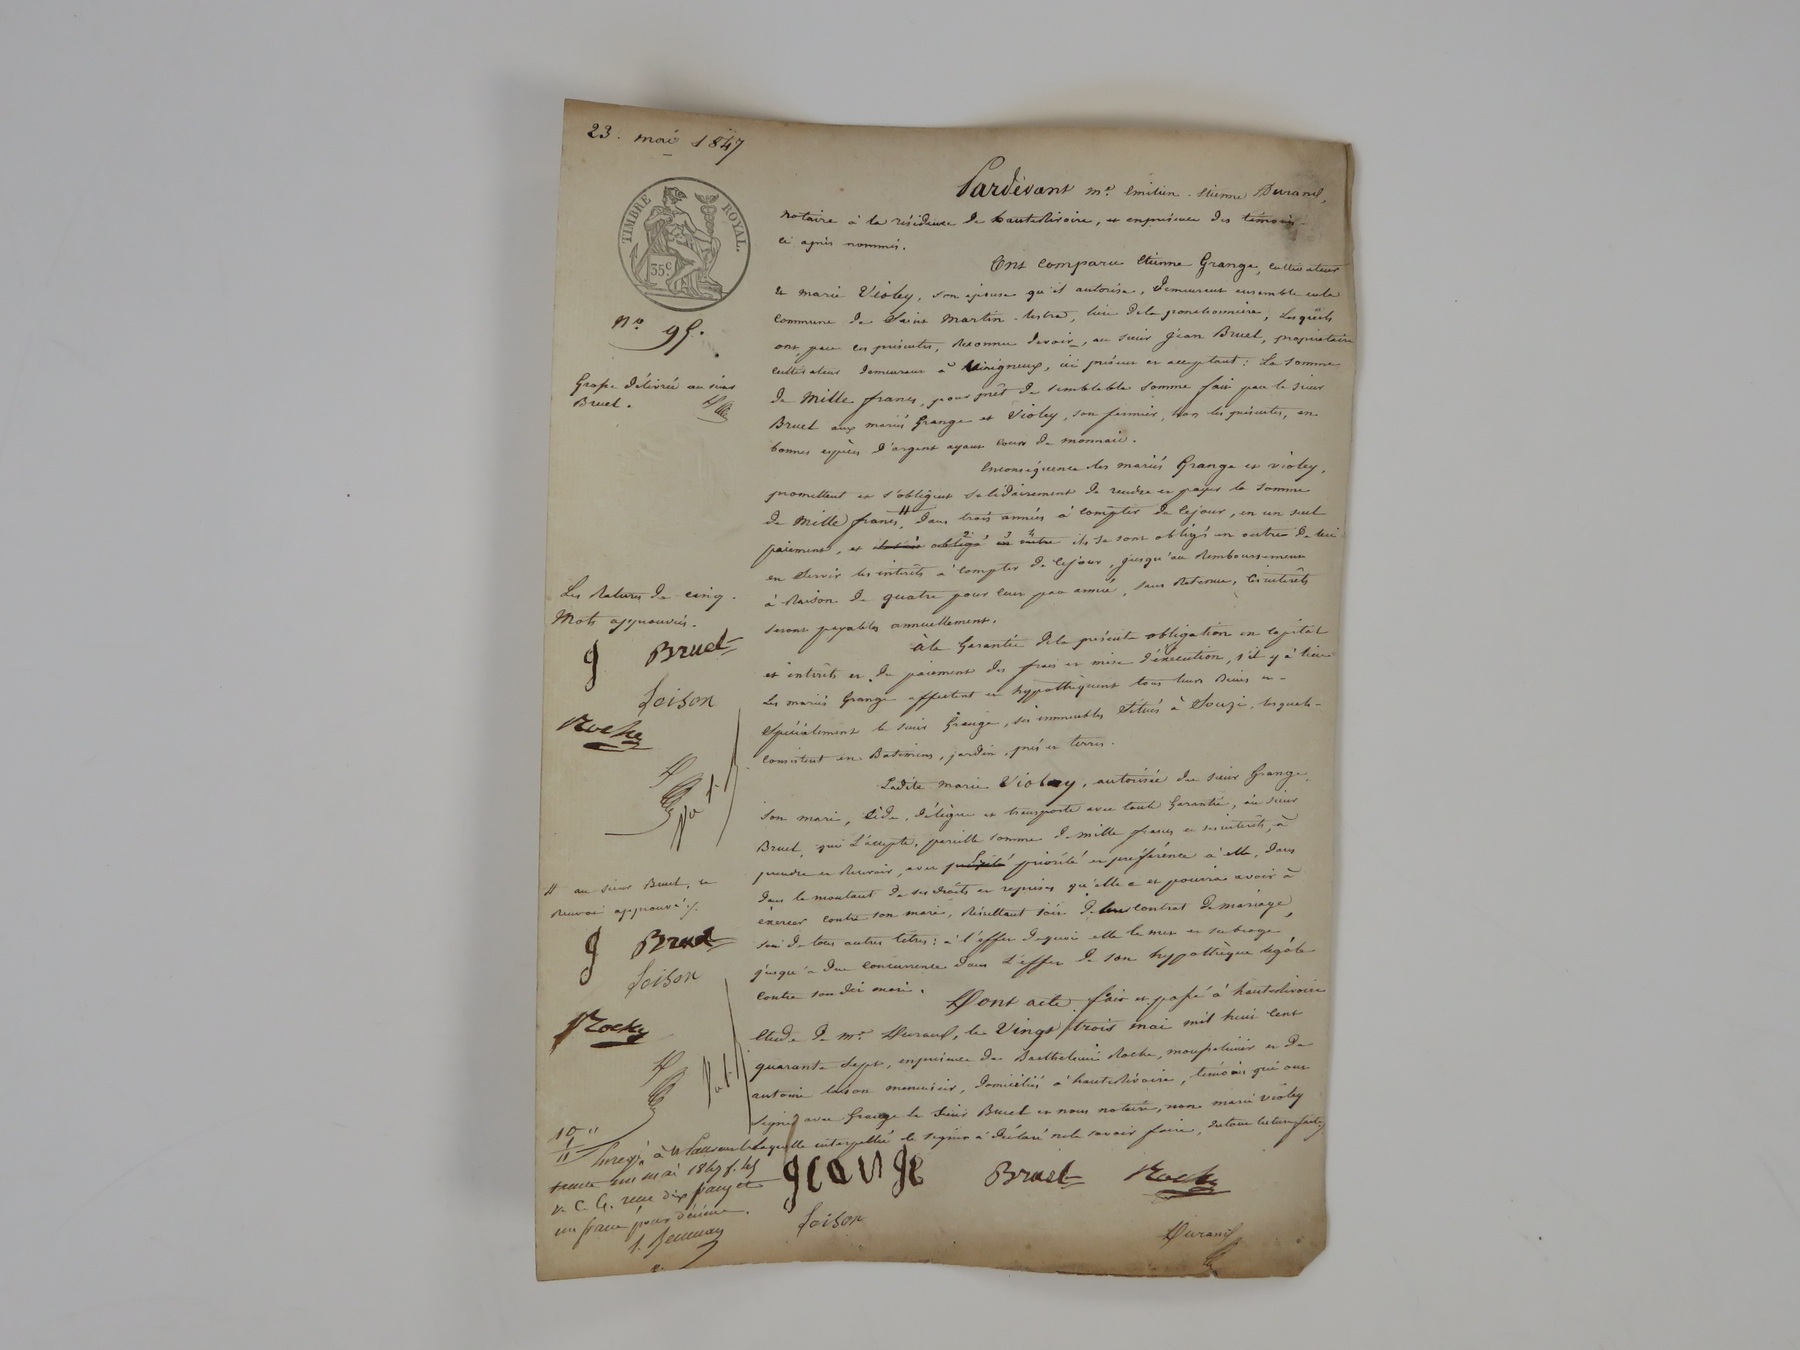 23. mai 1847
TIMBRE ROYAL.
35c.
No. 95.
Grosse délivrée au sieur
Bruel.
Pardevant me. Emilien-Etienne Durand,
notaire à la résidence de hauterivoire, et en présence des témoins
ci après nommés.
Ont comparu Etienne Grange, cultivateur
et marie Violey, son épouse qu'il autorise, demeurant ensemble en la
commune de Saint Martin-lestra, lieu de la ponchonnière, Lesquels
ont, par ces présentes, Reconnu devoir, au sieur Jean Bruel, propriétaire
cultivateur demeurant à virigneux, ici présent et acceptant: La somme
de Mille francs, pour prêt de semblable somme fait par le sieur
Bruel aux mariés Grange et Violey, son fermier, hors les présentes, en
bonnes espèces d'argent ayant cours de monnaie.
En conséquence les mariés Grange et violey,
promettent et s'obligent solidairement de rendre et payer la somme
de Mille francs # dans trois années à compter de ce jour, en un seul
paiement, et obligé en outre ils se sont obligés en outre de lui
en servir les intérêts à compter de ce jour, jusqu'au Remboursement
à Raison de quatre pour cent par année, sans Retenue, les intérêts
seront payables annuellement.
à la Garantie de la présente obligation en capital
et intérêts et de paiement des frais et mise d'éxécution, s'il y a lieu
Les mariés Grange affectent et hyppothèquent tous leurs Biens et
spécialement le sieur Grange, ses immeubles Situés à Souzi, lesquels
consistent en Batimens, jardin, prés et terres.
Ladite marie Violey, autorisée du sieur Grange,
son mari, Cède, délègue et transporte avec toute Garantie, au sieur
Bruel, qui l'accepte, pareille somme de mille francs et ses intérêts, à
prendre et Recevoir, avec priorité et préférence à elle, dans
dans le montant de ses droits et reprises qu'elle a et pourra avoir à
éxercer contre son mari, Résultant soit de leur contrat de mariage,
soit de tous autres titres: à l'effet de quoi elle le met et subroge
jusqu'à due concurrence dans l'effet de son hyppothèque légale
contre son dit mari.
Dont acte, fait et passé à hauterivoire
Etude de me. Durand, le Vingt trois mai mil huit cent
quarante Sept, en présence de Barthelemi Roche, et de
antoine loison menuisier, domiciliés à hauterivoire, témoins qui ont
signé avec Grange le sieur Bruel et nous notaire, non marie violey
laquelle interpellée de signer a déclaré ne le savoir faire, de tout lecture faite
Les Ratures de cinq
Mots approuvées.
g Bruel
loison
Roche
# au sieur Bruel, ce
Renvoi approuvé
g Bruel
loison
Roche
Enregé. à St Laurent le
trente un mai 1847 f. 45
v. C. 4. reçu dix francs et
un franc pour décime.
grange Bruel Roche
loison
Durand